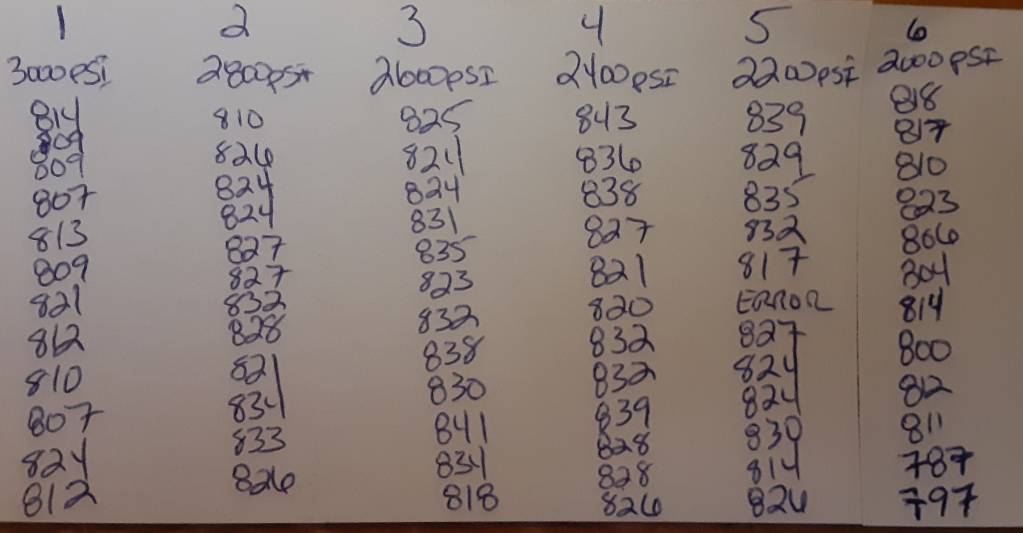 1 2 3 4 5 6
3000psi 2800psi 2600psi 2400psi 2200psi 2000psi
814 810 825 843 839 818
809 826 824 836 829 817
809 824 824 838 835 810
807 824 831 827 832 823
813 827 835 821 817 806
809 827 823 820 ERROR 804
821 832 832 832 827 814
812 828 838 832 824 800
810 821 830 839 824 812
807 834 841 828 830 811
824 833 834 828 814 787
812 826 818 826 826 797